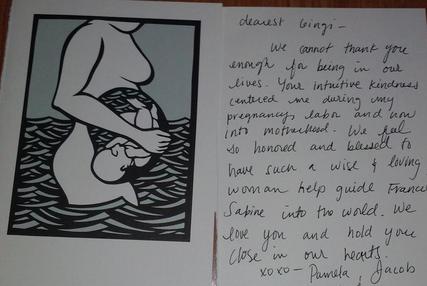 dearest Gingi –
We cannot thank you
enough for being in our
lives. Your intuitive kindness
centered me during my
pregnancy, labor and now
into motherhood. We feel
so honored and blessed to
have such a wise & loving
woman help guide France
Sabine into the world. We
love you and hold you
close in our hearts.
xoxo – Pamela, Jacob